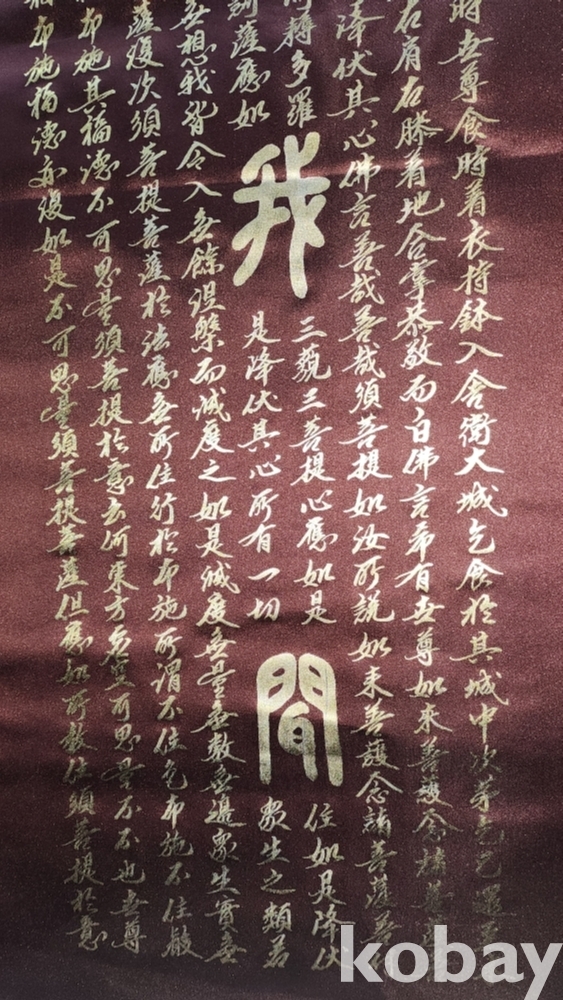 時世尊食時着衣持鉢入舍衛大城乞食於其城中次第乞已還至
右肩右膝着地合掌恭敬而白佛言希有世尊如來善護念諸菩薩
降伏其心佛言善哉善哉須菩提如汝所說如來善護念諸菩薩善
耨多羅
三藐三菩提心應如是
住如是降伏
我
間
訶薩應如
是降伏其心所有一切
衆生之類若
無想我皆令入無餘涅槃而滅度之如是滅度無量無數無邊衆生實無
薩復次須菩提菩薩於法應無所住行於布施所謂不住色布施不住聲
布施其福德不可思量須菩提於意云何東方虛空可思量不不也世尊
相布施福德亦復如是不可思量須菩提菩薩但應如所教住須菩提於意
kobay